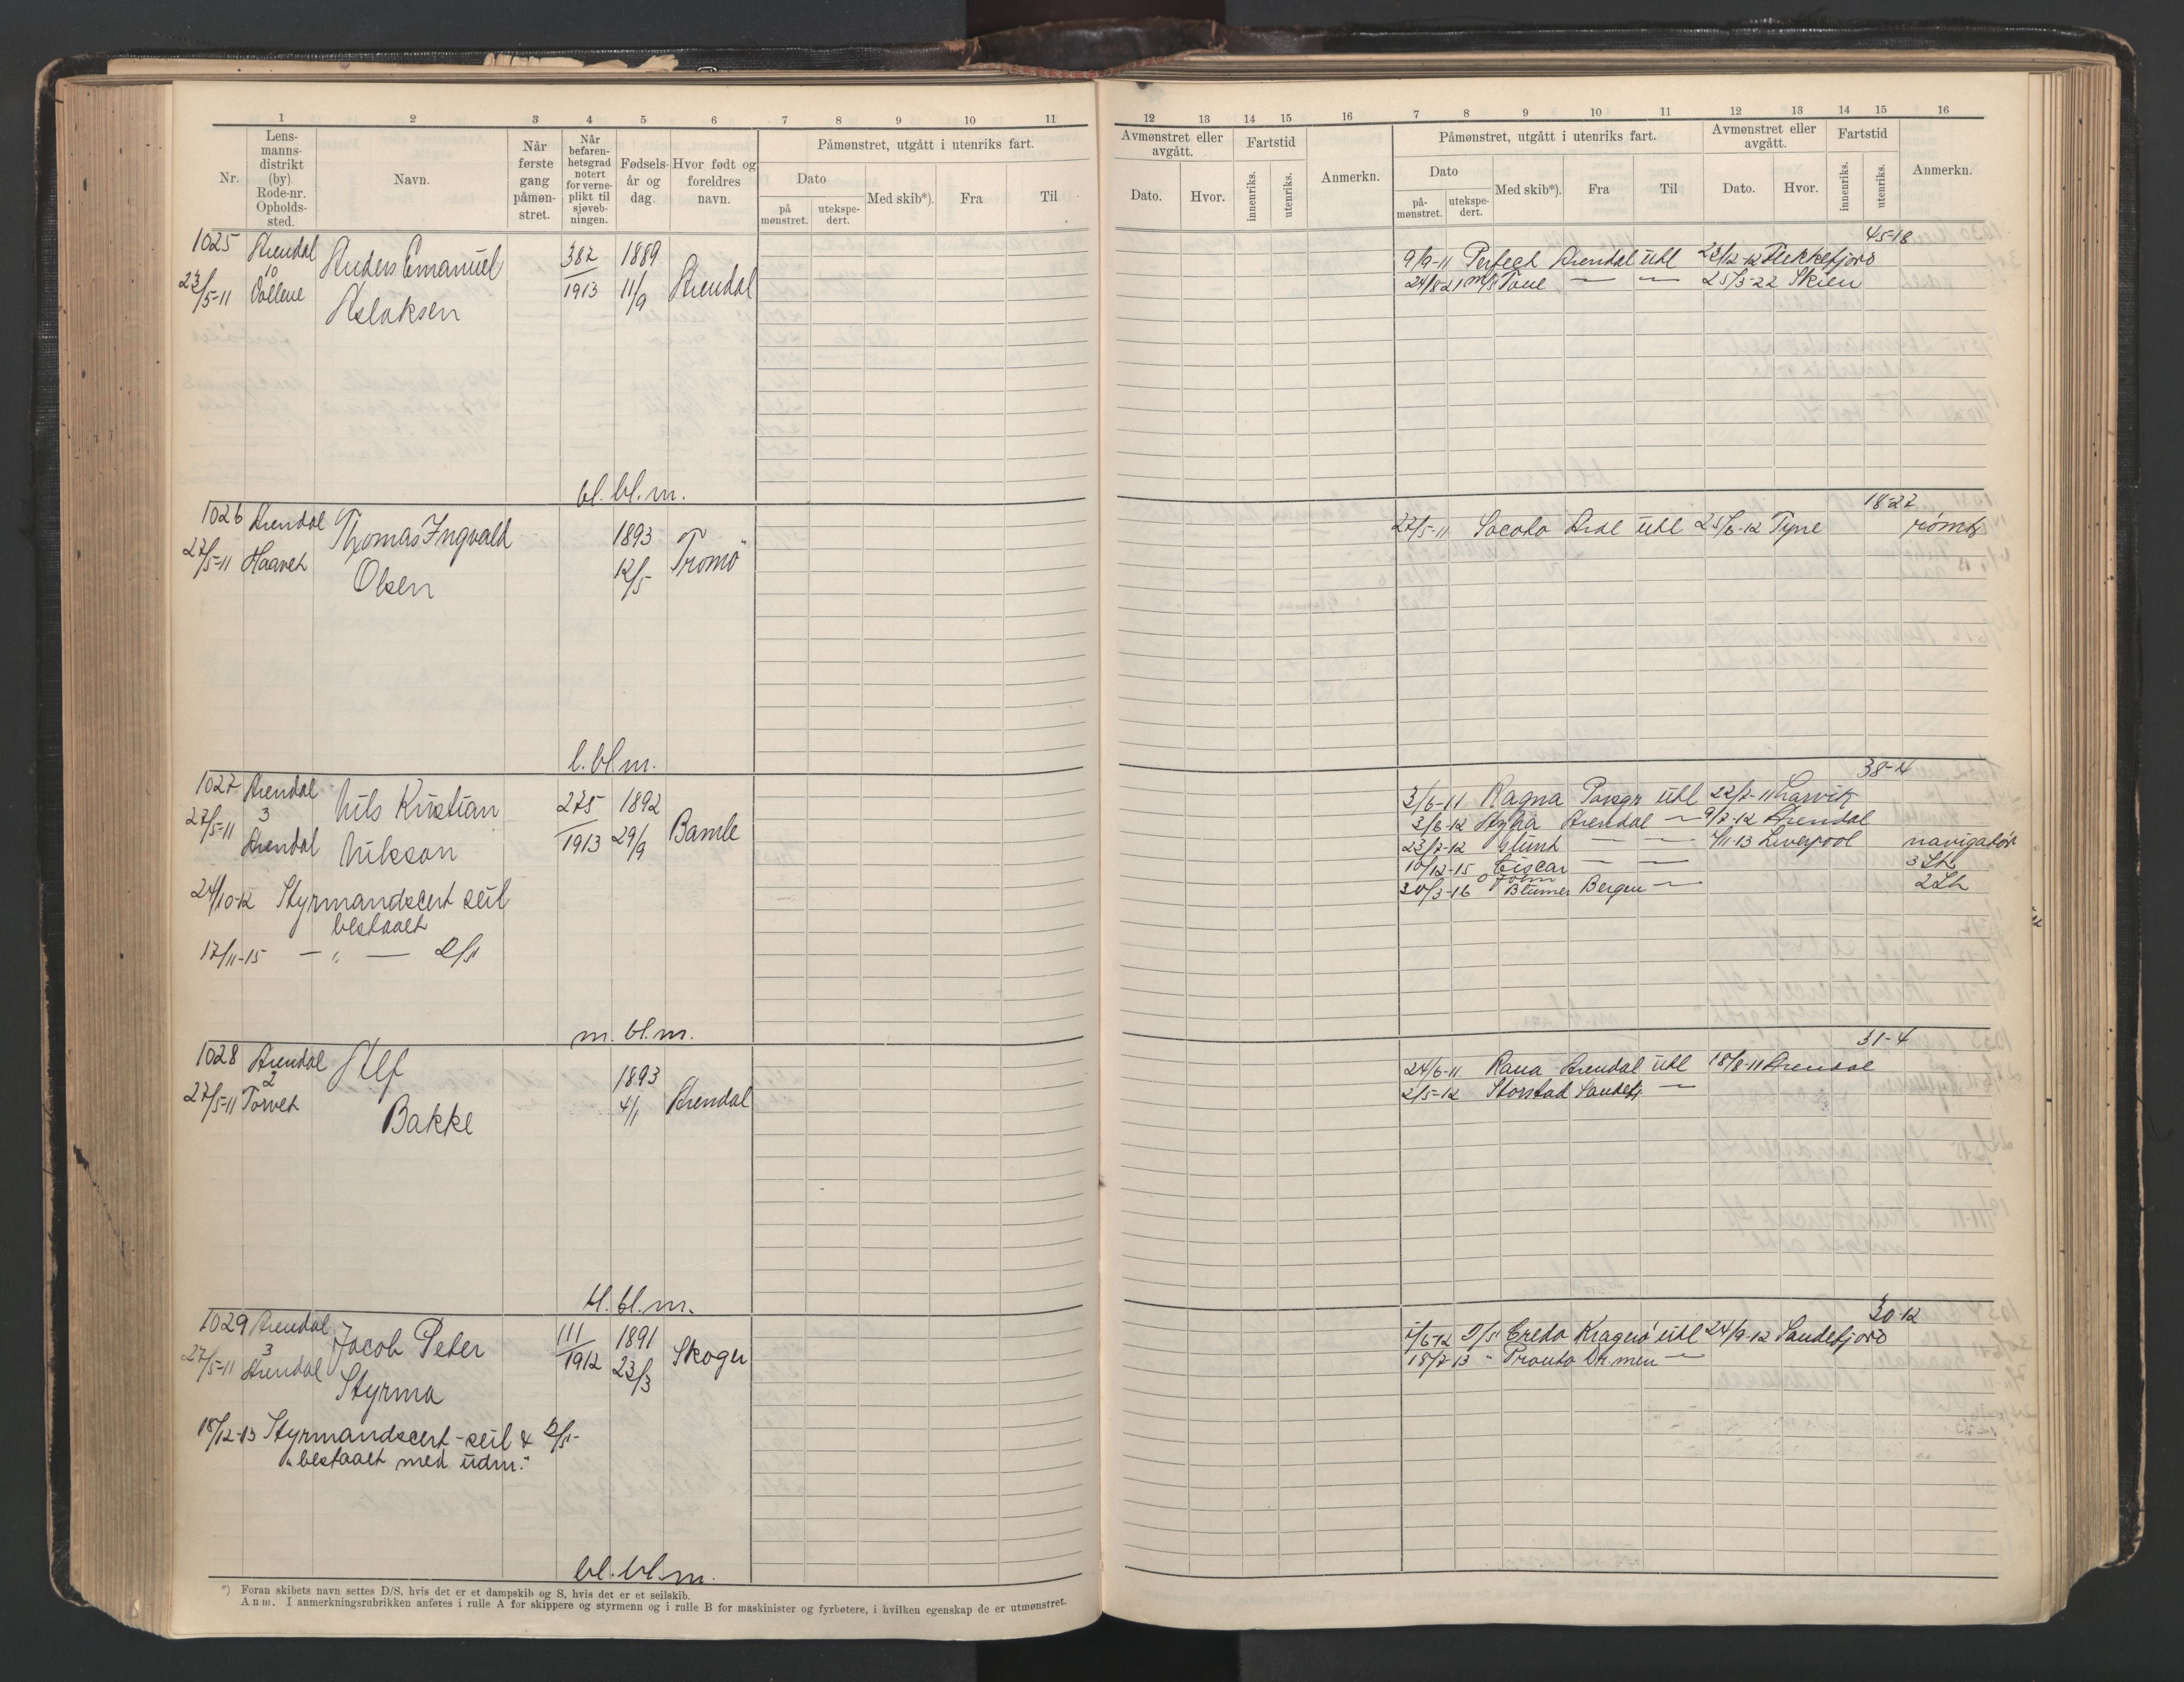 1 2 3 4 5 6 7 8 9 10 11
Nr.
Lens-
manns-
distrikt
(by).
Rode-nr.
Opholds-
sted.
Navn.
Når
første
gang
påmøn-
stret.
Når
befaren-
hetsgrad
notert
for verne-
plikt til
sjøveb-
ningen.
Fødsels-
år og
dag.
Hvor født og
foreldres
navn.
Påmønstret, utgått i utenriks fart.
Dato
på
mønstret.
utekspe-
dert.
Med skib*).
Fra
Til
1025 Arendal Anders Emanuel 382 1889
10
23/5-11 1913 11/9 Arendal
Aslaksen
bl. bl. m.
1026 Arendal Thomas Ingvald 1893 Tromö
27/5-11 Haavet Olsen 12/5
l. bl m.
1027 Arendal Nils Kristian 275 1892 Bamle
27/5-11 3 1913 29/9
Arendal Nilsson
24/10-12 Styrmandscert seil
bestaaet
17/11-15 — " — D/S
m. bl. m.
1028 Arendal Alf 1893 Arendal
2
27/5-11 Torvet Bakke 4/1
bl. bl. m.
1029 Arendal Jacob Peter 111 1891 Skoger
3
27/5-11 Arendal Styrma 1912 23/3
18/12-13 Styrmandscert - seil & D/S-
"bestaaet med udm."
bl. bl. m.
*) Foran skibets navn settes D/S, hvis det er et dampskib og S, hvis det er et seilskib.
Anm. I anmerkningsrubrikken anføres i rulle A for skippere og styrmenn og i rulle B for maskinister og fyrbøtere, i hvilken egenskap de er utmønstret.
12 13 14 15 16 7 8 9 10 11 12 13 14 15 16
Avmønstret eller
avgått.
Dato. Hvor.
Fartstid
innenriks.
utenriks.
Anmerkn.
Påmønstret, utgått i utenriks fart.
Dato
på-
mønstret.
utekspe-
dert.
Med skib*). Fra Til
Avmønstret eller
avgått.
Dato. Hvor.
Fartstid
innenriks.
utenriks.
Anmerkn.
45-18
9/9-11 Perfect Arendal utl 23/12-12 Flekkefjord
24/8-21 M/S Tove — — 25/3-22 Skien
18-27
27/5-11 Socoto Ardl utl 25/6-12 Tyne rømt
38-4
3/6-11 Ragna Porsgr utl 22/7-11 Larvik
3/6-12 Arendal — 9/7-12 Arendal
23/7-12 — — 4/11-13 Liverpool navigatör
10/12-15 Ciscar — — 3 St
30/3-16 John Blumer Bergen — 2 St
31-4
24/6-11 Rana Arendal utl 18/8-11 Arendal
2/5-12 Storstad Sandefj —
30-12
1/6-12 D/S Credo Kragerö utl 24/9-12 Sandefjord
18/2-13 " Pronto Dr.men —